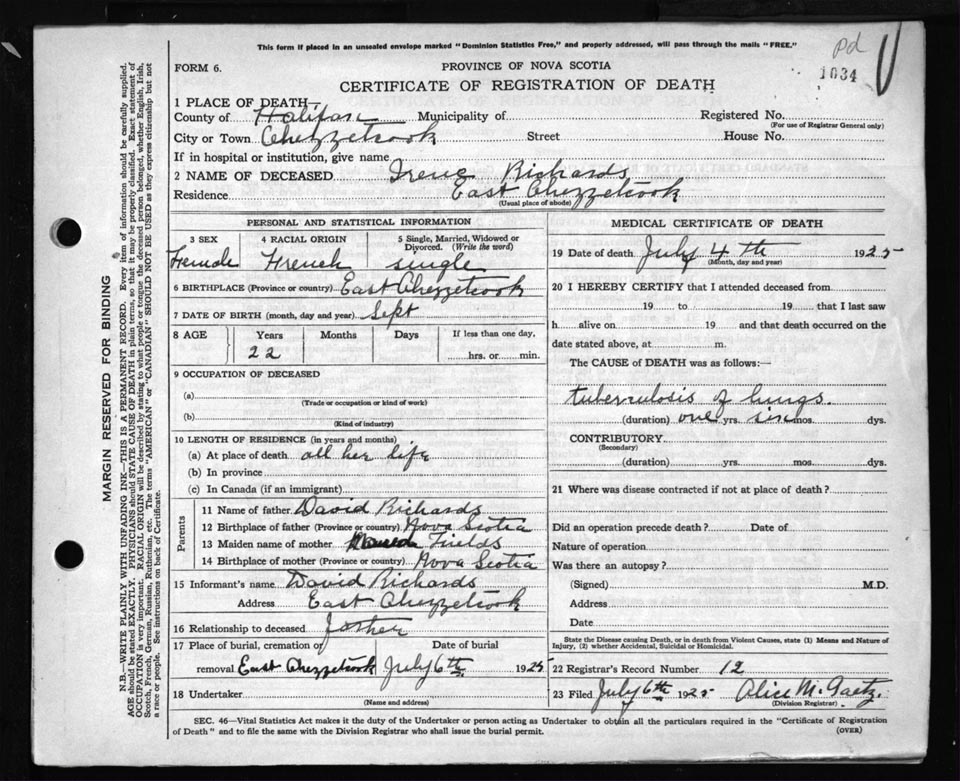 Pd
1034
This form if placed in an unsealed envelope marked "Dominion Statistics Free," and properly addressed, will pass through the mails "FREE."
FORM 6.
PROVINCE OF NOVA SCOTIA
CERTIFICATE OF REGISTRATION OF DEATH
1 PLACE OF DEATH—
County of Halifax Municipality of Registered No.
(For use of Registrar General only)
City or Town Chezzetcook Street House No.
If in hospital or institution, give name
2 NAME OF DECEASED Irene Richards
Residence East Chezzetcook
(Usual place of abode)
PERSONAL AND STATISTICAL INFORMATION
3 SEX 4 RACIAL ORIGIN 5 Single, Married, Widowed or Divorced. (Write the word)
Female French single
6 BIRTHPLACE (Province or country) East Chezzetcook
7 DATE OF BIRTH (month, day and year) Sept
8 AGE Years Months Days If less than one day,
22 hrs. or min.
9 OCCUPATION OF DECEASED
(a)
(Trade or occupation or kind of work)
(b)
(Kind of industry)
10 LENGTH OF RESIDENCE (in years and months)
(a) At place of death all her life
(b) In province
(c) In Canada (if an immigrant)
Parents
11 Name of father David Richards
12 Birthplace of father (Province or country) Nova Scotia
13 Maiden name of mother Fields
14 Birthplace of mother (Province or country) Nova Scotia
15 Informant's name David Richards
Address East Chezzetcook
16 Relationship to deceased father
17 Place of burial, cremation or removal East Chezzetcook
Date of burial July 6th 1925
18 Undertaker
(Name and address)
MEDICAL CERTIFICATE OF DEATH
19 Date of death July 4th 1925
(Month, day and year)
20 I HEREBY CERTIFY that I attended deceased from
19 to 19 that I last saw
h alive on 19 and that death occurred on the
date stated above, at m.
The CAUSE of DEATH was as follows:—
tuberculosis of lungs.
(duration) one yrs. six mos. dys.
CONTRIBUTORY
(Secondary)
(duration) yrs. mos. dys.
21 Where was disease contracted if not at place of death?
Did an operation precede death? Date of
Nature of operation
Was there an autopsy?
(Signed) M.D.
Address
Date
State the Disease causing Death, or in death from Violent Causes, state (1) Means and Nature of
Injury, (2) whether Accidental, Suicidal or Homicidal.
22 Registrar's Record Number 12
23 Filed July 6th 1925 Alice M. Gaetz.
(Division Registrar)
SEC. 46—Vital Statistics Act makes it the duty of the Undertaker or person acting as Undertaker to obtain all the particulars required in the "Certificate of Registration
of Death" and to file the same with the Division Registrar who shall issue the burial permit.
(OVER)
MARGIN RESERVED FOR BINDING
N.B.—WRITE PLAINLY WITH UNFADING INK—THIS IS A PERMANENT RECORD. Every item of information should be carefully supplied.
AGE should be stated EXACTLY. PHYSICIANS should STATE CAUSE OF DEATH in plain terms, so that it may be properly classified. Exact statement of
OCCUPATION is very important. RACIAL ORIGIN will be described by stating to what people or tongue the deceased person belonged, whether English, Irish,
Scotch, French, German, Russian, Ruthenian, etc. The terms "AMERICAN" or "CANADIAN" SHOULD NOT BE USED as they express citizenship but not
a race or people. See instructions on back of Certificate.